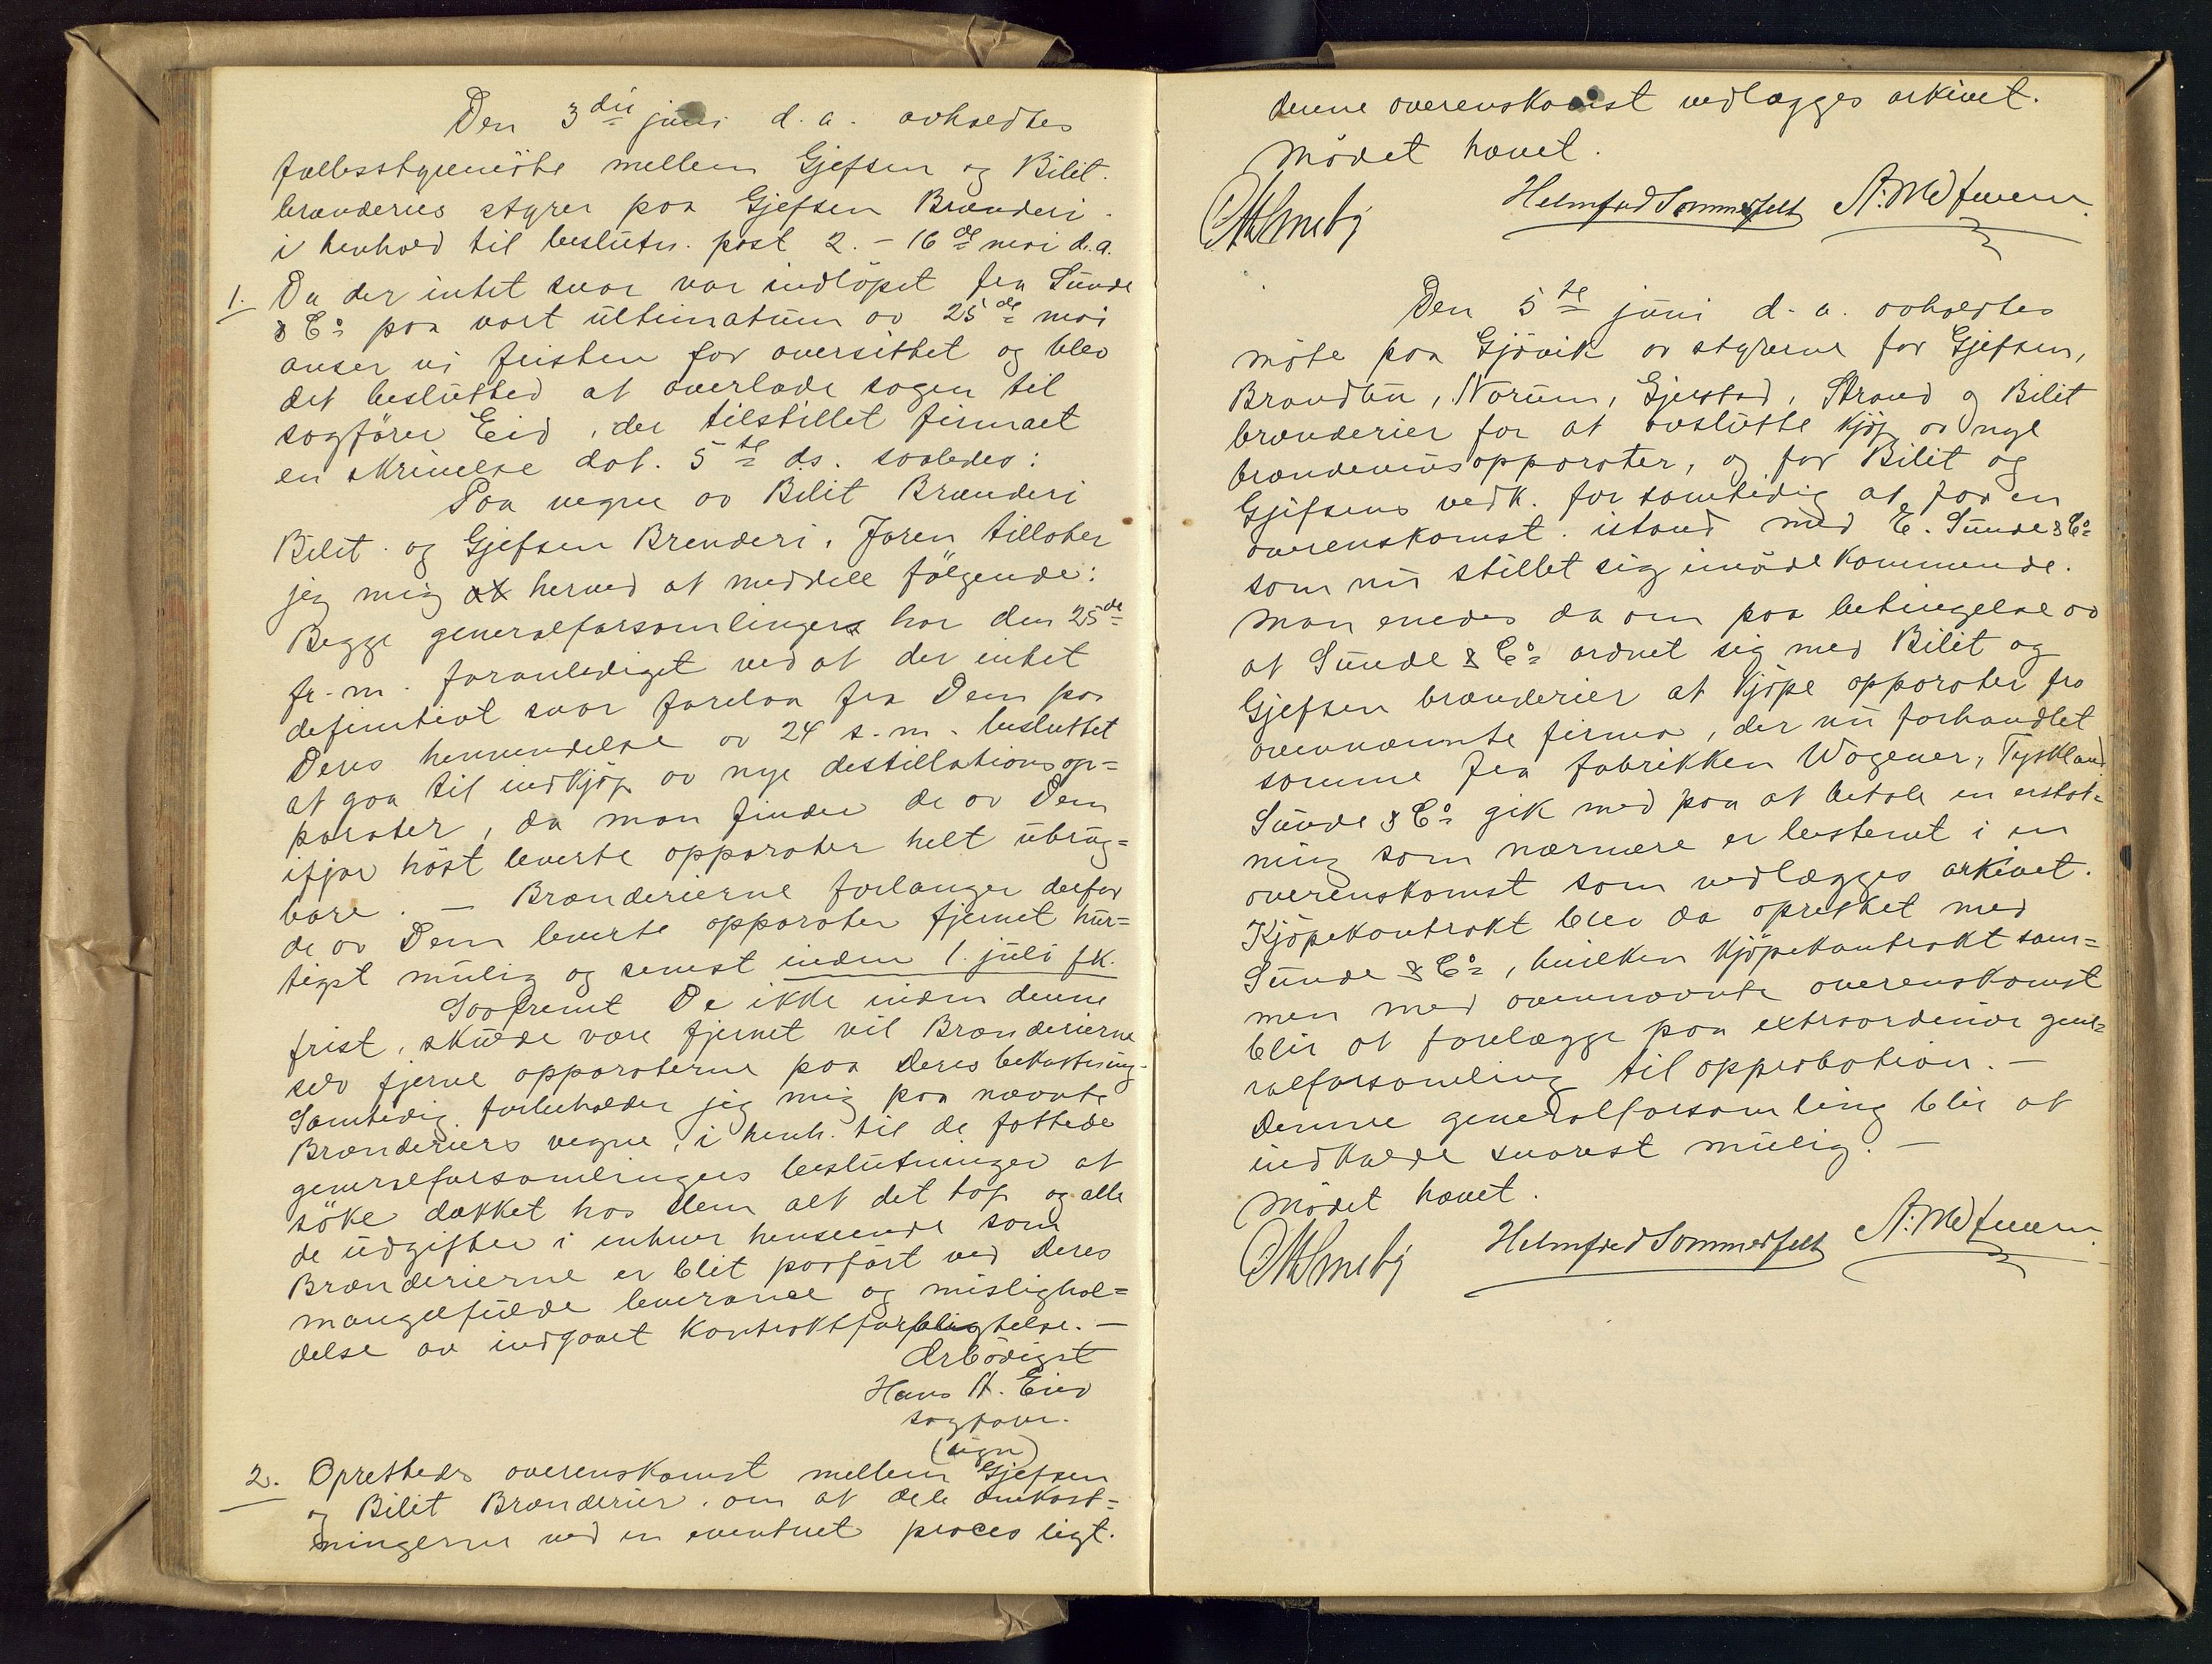 Den 3die juni d.a. avholdtes
fællesstyremöte mellem Gjefsen og Bilit
brænderies styrer paa Gjefsen Brænderi
i henhold til beslutn. post 2. - 16de mai d.a.
1. Da der intet svar var indlöpet fra Sunde
& Co paa vort ultimatum av 25de mai
anser vi fristen for oversittet og blev
det beslutted at overlade sagen til
sagförer Eid, der tilstillet firmaet
en skrivelse dat. 5te ds. saaledes:
Paa vegne av Bilit Brænderi
Bilit og Gjefsen Brenderi, Jaren tillater
jeg mig at herved at meddele fölgende:
Begge generalforsamlinger har den 25de
f.m. foranlediget ved at der intet
definitivt svar forelaa fra Dem paa
Deres henvendelse av 24 s.m. besluttet
at gaa til indkjöp av nye destillationsap=
parater, da man finder de av Dem
ifjor höst leverte apparater helt ubrug=
bare. - Brænderierne forlanger derfor
de av Dem leverte apparater fjernet hur=
tigst mulig og senest inden 1. juli fk.
Saafremt De ikke inden denne
frist, skulde være fjernet vil Brænderierne
selv fjerne apparaterne paa Deres bekostning.
Samtidig forbeholder jeg mig paa nævnte
Brænderiers vegne, i henh. til de fattede
generalforsamlingers beslutninger at
söke dækket hos Dem alt det tap og alle
de udgifter i enhver henseende som
Brænderierne er blit paafört ved Deres
mangelfulde leverance og mislighol=
delse av indgaaet kontraktforpligtelse. -
Ærbödigst
Hans A. Eid
sagförer.
(sign)
2. Oprettedes overenskomst mellem Gjefsen
og Bilit Brænderier, om at dele omkost=
ningerne ved en eventuel proces ligt.
denne overenskomst vedlægges arkivet.
Mödet hævet.
Helmfred Sommerfelt
Den 5te juni d.a. avholdtes
möte paa Gjövik av styrerne for Gjefsen,
Brandbu, Norum, Gjerstad, Strand og Bilit
brænderier for at avslutte kjöp av nye
brændevinsapparater, og for Bilit og
Gjefsens vedk. for samtidig at faa en
overenskomst istand med E. Sunde & Co
som nu stillet sig imödekommende.
Man enedes da om paa betingelse av
at Sunde & Co ordnet sig med Bilit og
Gjefsen brænderier at kjöpe apparater fra
ovennævnte firma, der nu forhandlet
samme fra fabrikken Wagener, Tyskland.
Sunde & Co gik med paa at betale en erstat=
ning som nærmere er bestemt i en
overenskomst som vedlægges arkivet.
Kjöpekontrakt blev da oprettet med
Sunde & Co, hvilken kjöpekontrakt sam=
men med ovennævnte overenskomst
blir at forelægge paa extraordinær gene=
ralforsamling til approbation. -
Denne generalforsamling blir at
indkalde snarest mulig. -
Mödet hævet.
Helmfred Sommerfelt